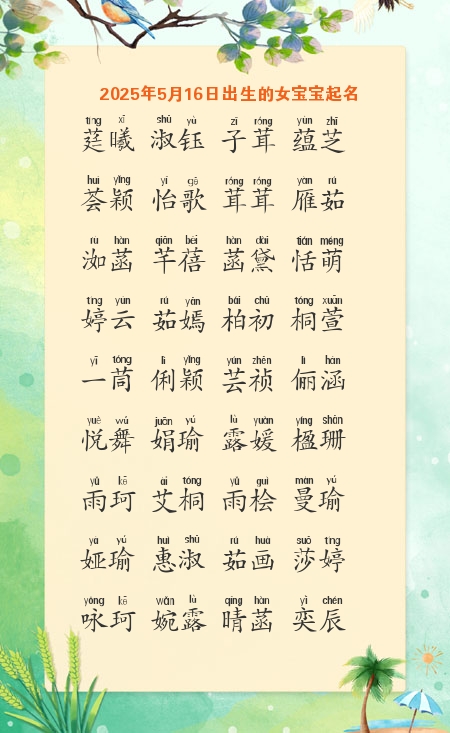 2025年5月16日出生的女宝宝起名
tíng xī shū yù zī róng yùn zhī
莛曦 淑钰 子茸 蕴芝
huì yǐng yí gē róng róng yàn rú
荟颖 怡歌 茸茸 雁茹
rù hàn qiān bèi hàn dài tián méng
洳菡 芊蓓 菡黛 恬萌
tíng yún rú yān bái chū tóng xuān
婷云 茹嫣 柏初 桐萱
yī tóng lì yǐng yún zhēn lì hán
一茼 俐颖 芸祯 俪涵
yuè wǔ juān yú lù yuàn yíng shān
悦舞 娟瑜 露媛 楹珊
yǔ kē ài tóng yǔ guì màn yú
雨珂 艾桐 雨桧 曼瑜
yà yú huì shū rú huà suō tíng
娅瑜 惠淑 茹画 莎婷
yǒng kē wǎn lù qíng hàn yì chén
咏珂 婉露 晴菡 奕辰